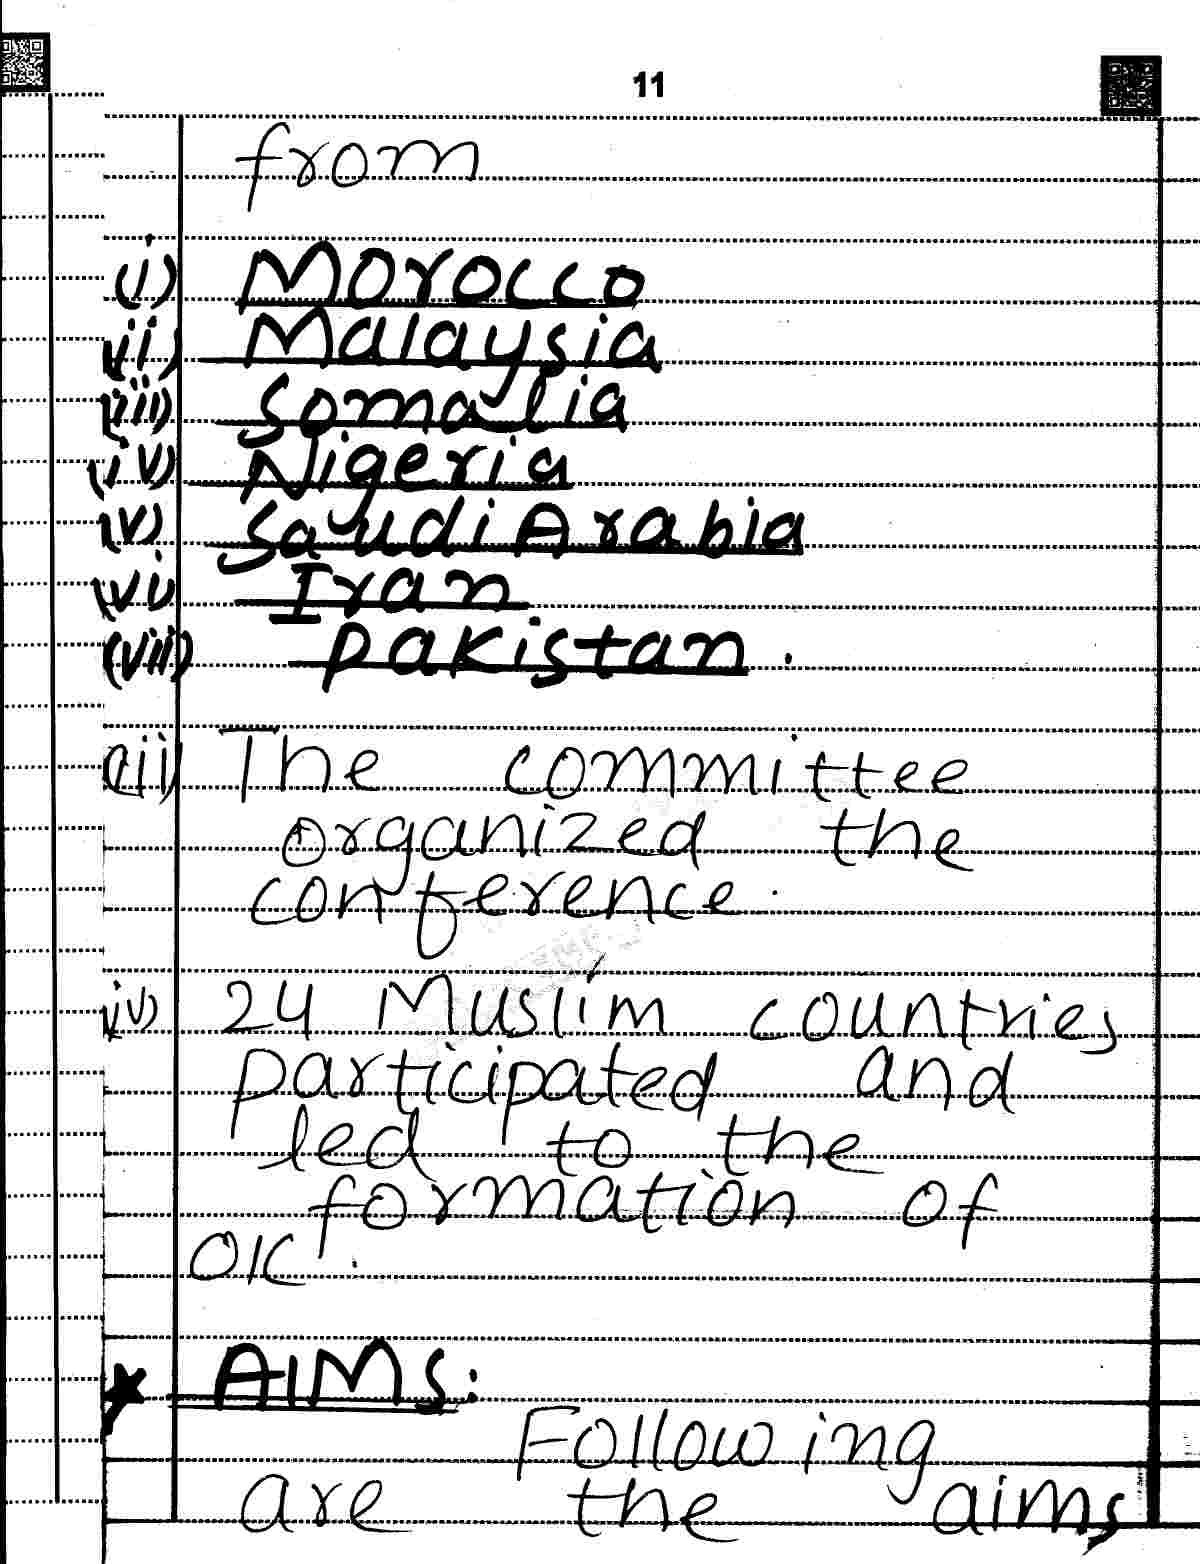 11
from
(i) Morocco
(ii) Malaysia
(iii) Somalia
(iv) Nigeria
(v) Saudi Arabia
(vi) Iran
(vii) Pakistan.
(iii) The committee
organized the
conference.
iv) 24 Muslim countries
participated and
led to the
formation of
OIC.
* AIMS:
Following
are the aims